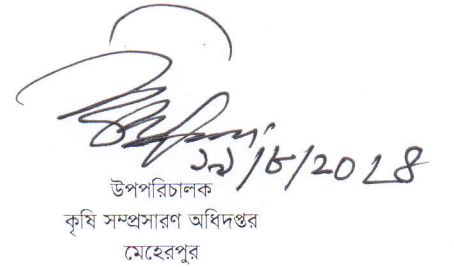 ১৯/৮/২০১৪
উপপরিচালক
কৃষি সম্প্রসারণ অধিদপ্তর
মেহেরপুর